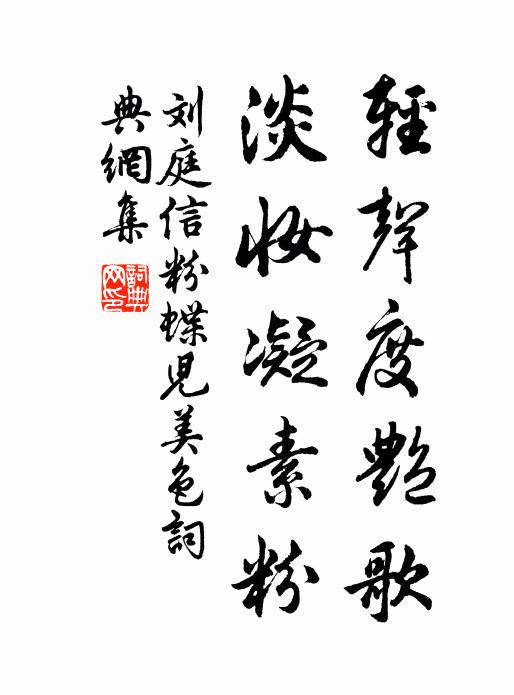 輕聲度艷歌
淡妝凝素粉
刘庭信粉蝶児美色詞
典網集
詞典网印